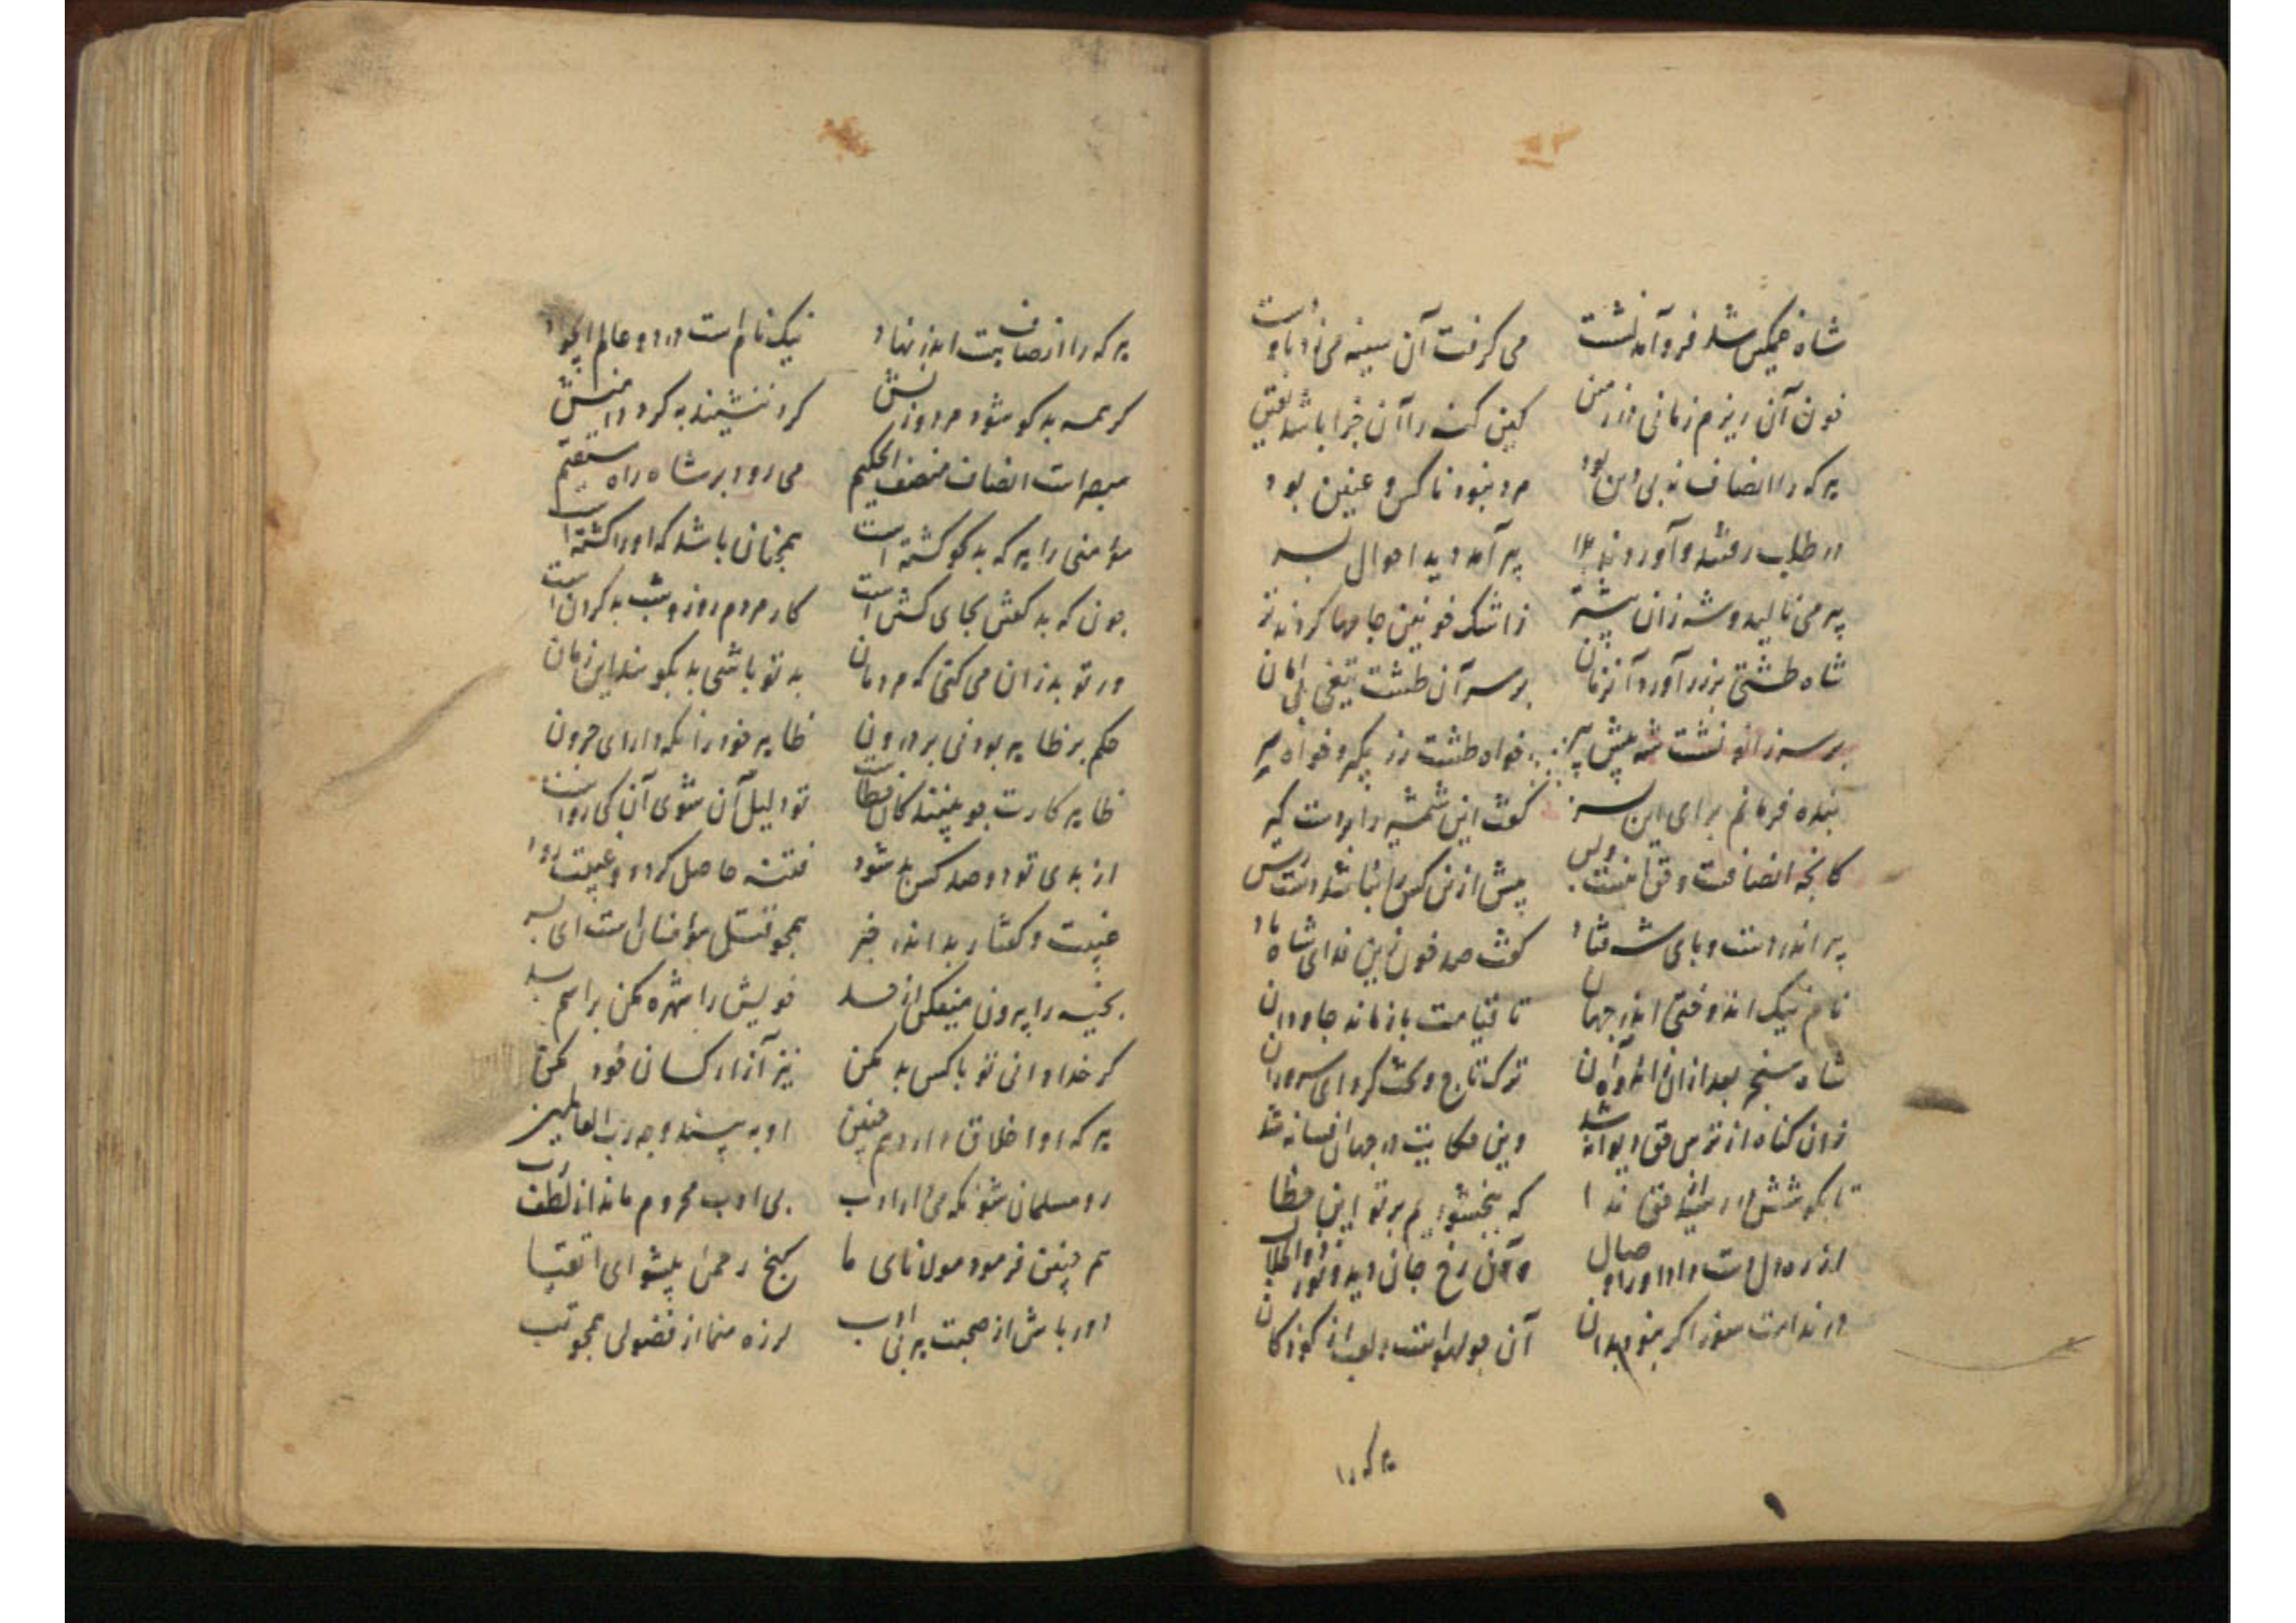 شاه غمگین شد فرو آمد نشست می گرفت آن سینه می زد با دو دست
خون آن ریزم زمانی در زمین کین کنه را آن جزا باشد یقین
هر که را انصاف نه بی دین بود مرد نبود ناکس و عنین بود
در طلب رفتند و آوردند پدر پیر آمد دید احوال پسر
پیر می نالید و شه زان بیشتر ز اشک خونین جامها کردند تر
شاه طشتی پر زر آورد آن زمان بر سر آن طشت تیغی بی امان
بر سر زانو نشست شه پیش پیر خواه طشت زر بگیر و خواه سر
بنده فرمانم برای این پسر گفت این شمشیر را بردست گیر
کانچه انصافست و حق اینست و بس پیش ازین کس را نباشد دست رس
پیر اندر دست و پای شه فتاد گفت صد خون این فدای شاه باد
نام نیک اندوختی اندر جهان تا قیامت باز ماند جاودان
شاه سنجر بعد ازان ترک تاج و تخت کرد ای سروران
زان کناه از ترس حق دیوانه شد وین حکایت در جهان افسانه شد
تا بکوشش در رسید از حق ندا که ببخشودیم بر تو این خطا
از ره دل دست داد او را وصال رخ جان دید و نور
آن چو لهو است و لعب از کودکان
هر که را
هر که را انصاف هست اندر نهاد نیک نام است در دو عالم
کر همه بد کو شود مرد و زنش کرد ننشیند به کرد دامنش
مبصر است انصاف منصف ای حکیم می رود بر شاه راه مستقیم
مؤمنی را هر که بد کو کشته است همچنان باشد که او را کشته است
چون که بد کفتن بجای کشتن است کار مردم روز و شب بد کردن است
ور تو بد زان می کنی که مردمان بد تو باشی بد بکویند این زمان
حکم بر ظاهر بود نی بر درون ظاهر خود را نکه دار ای حرون
ظاهر کارت چو بینند کان خطاست تو دلیل آن شوی آن کی رواست
از بدی تو دو صد کس بد شود فتنه حاصل کردد و غیبت رود
غیبت و گفتار بد اندر خبر همچو قتل مؤمنان است ای پسر
بخیه را بیرون میفکن از حسد خویش را شهره مکن بر اسم بد
کر خدا دانی تو با کس بد مکن نیز آزار کسان خود مکن
هر که او اخلاق دارد هم چنین او به بیند وجه رب العالمین
رو مسلمان شو نکه می دار ادب بی ادب محروم ماند از لطف رب
هم چنین فرمود مولانای ما کنج رحمن پیشوای اتقیا
دور باش از صحبت هر بی ادب لرزه منما از فضولی همچو تب